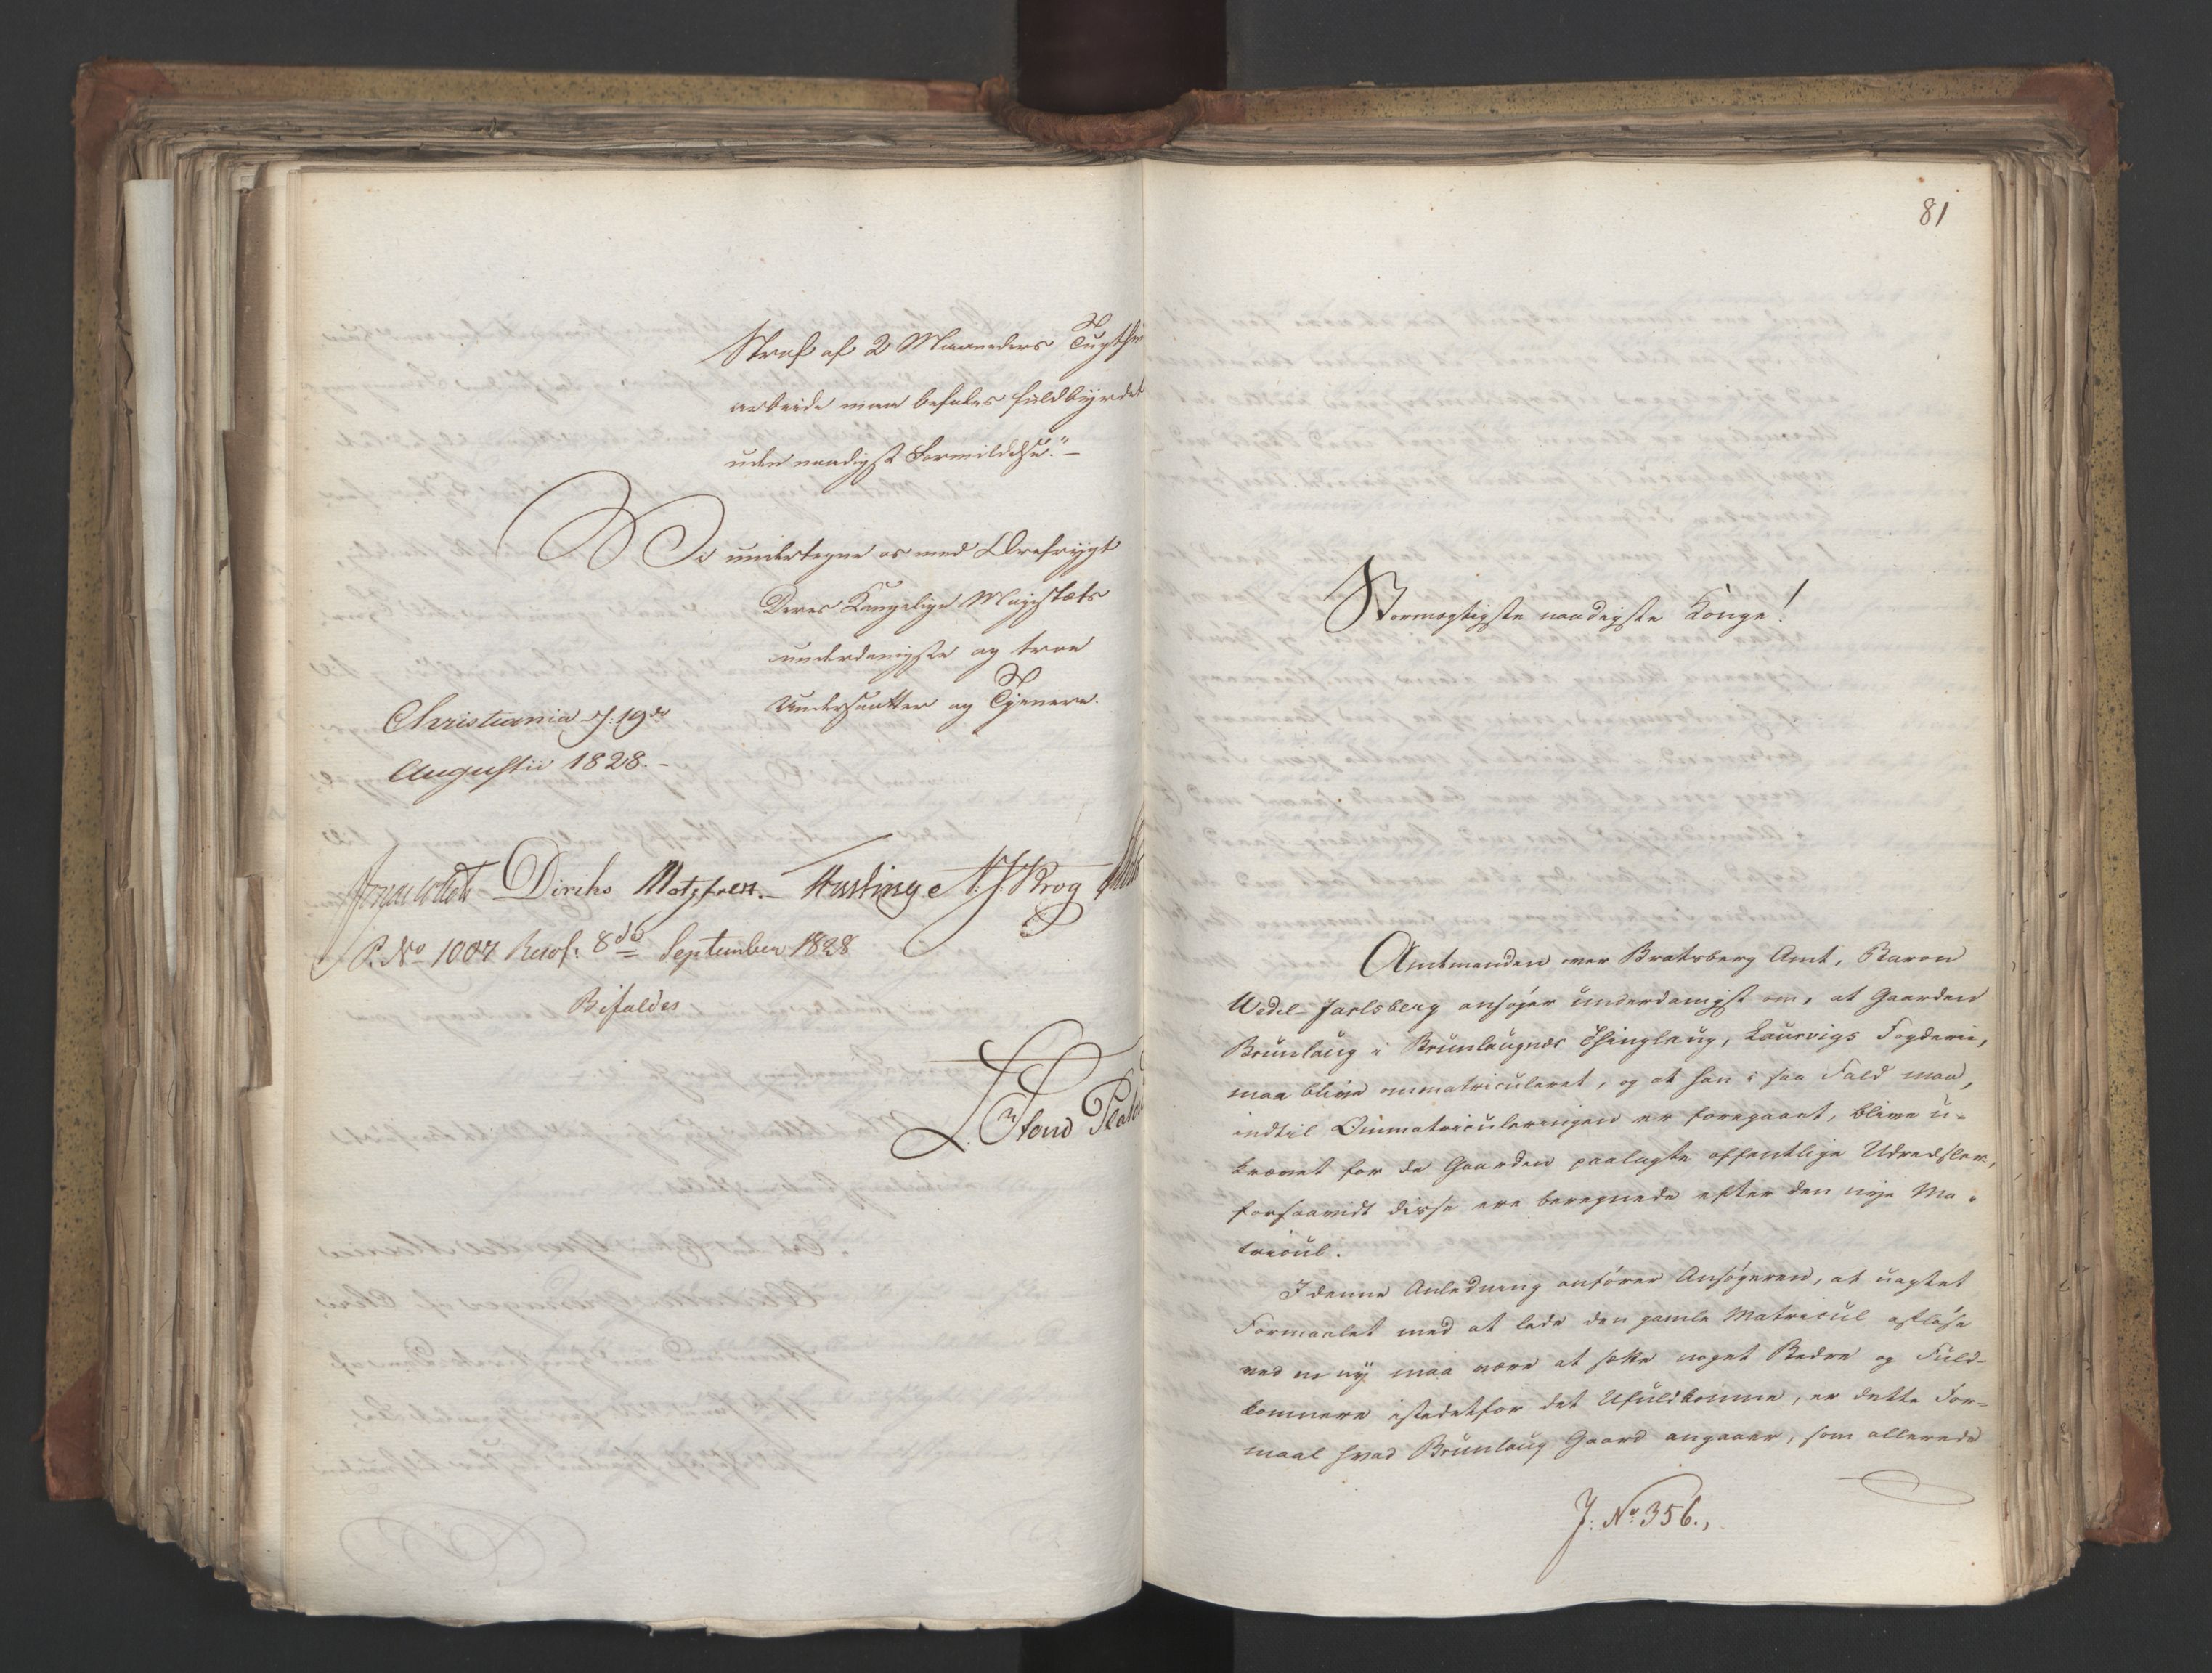 Straf af 2 Maaneders Tugthus
arbeide maa befales fuldbyrdet
uden naadigst Formildelse."-
Vi undertegne os med Ærefrygt
Deres Kongelige Majestæts
underdanigste og troe
Undersaatter og Tjenere.
Christiania d. 19de
Augustii 1828.-
Jonas Collett Diriks Motzfeldt. Hastinge N. J. Krog
P. No 1007 Resol: 8de September 1828
Bifaldes
81
Stormægtigste naadigste Konge!
Amtmanden over Bratsberg Amt, Baron
Wedel-Jarlsberg ansøger underdanigst om, at Gaarden
Brunlaug i Brunlaugnæs Thinglaug, Laurvigs Fogderie,
maa blive ommatriculeret, og at han i saa Fald maa,
indtil Ommatriculeringen er foregaaet, blive u-
krævet for de Gaarden paalagte offentlige Udredsler,
forsaavidt disse ere beregnede efter den nye Ma-
tricul.
I denne Anledning anfører Ansøgeren, at uagtet
Formaalet med at lade den gamle Matricul afløse
ved en ny maa være at sætte noget Bedre og Fuld-
komnere istedetfor det Ufuldkomne, er dette For-
maal hvad Brunlaug Gaard angaaer, som allerede
J: No 356.,